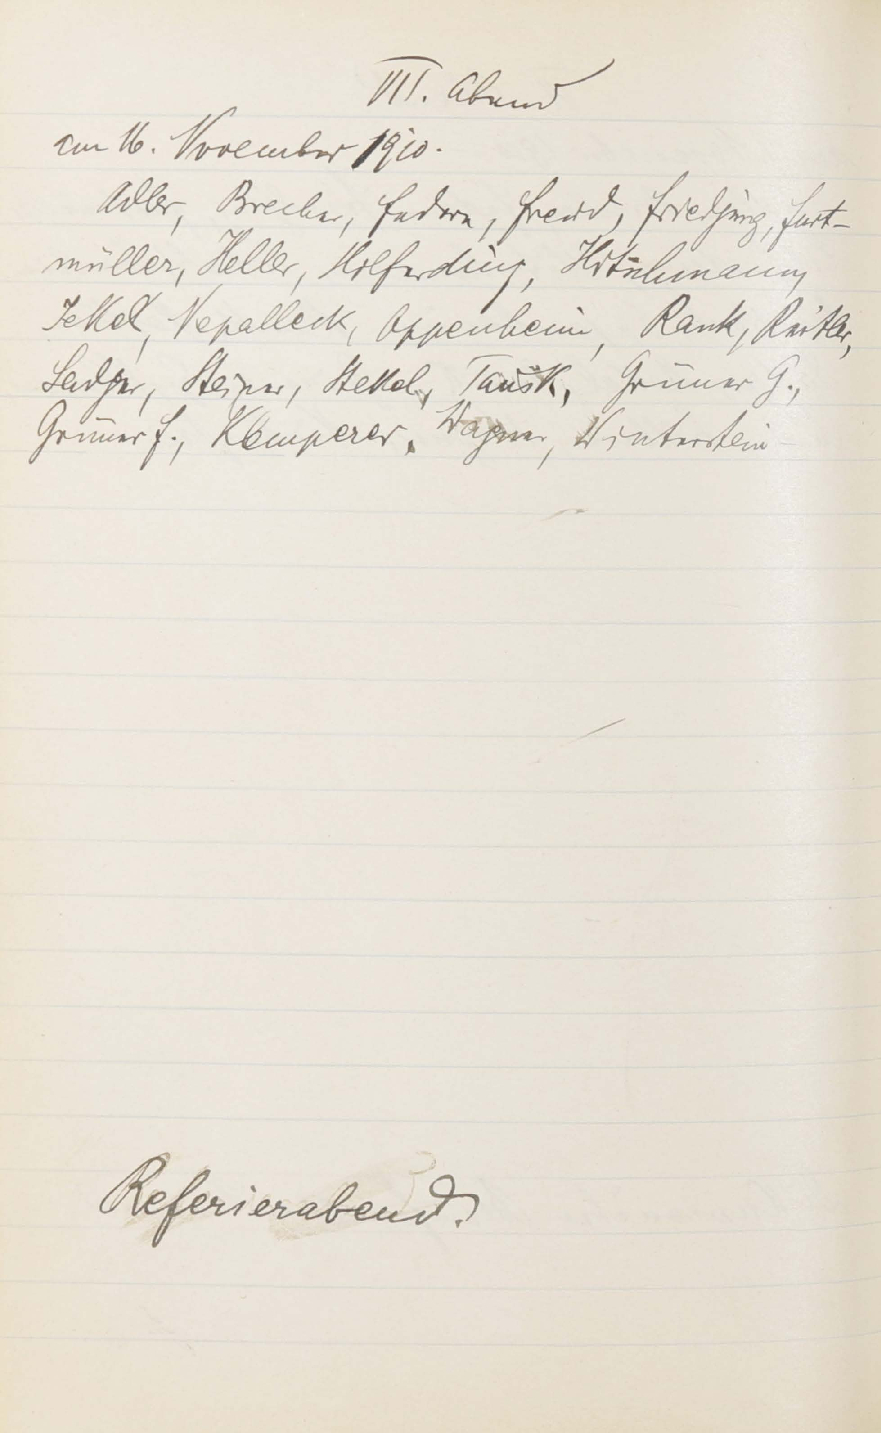 VII. Abend
am 16. November 1910.
Adler, Brecher, Federn, Freud, Friedjung, Furt-
müller, Heller, Hilferding, Hitschmann,
Jekel, Nepalleck, Oppenheim, Rank, Reitler,
Sadger, Steiner, Stekel, Tausk, Grüner G.,
Grüner F., Klemperer, Wagner, Winterstein
Referierabend.